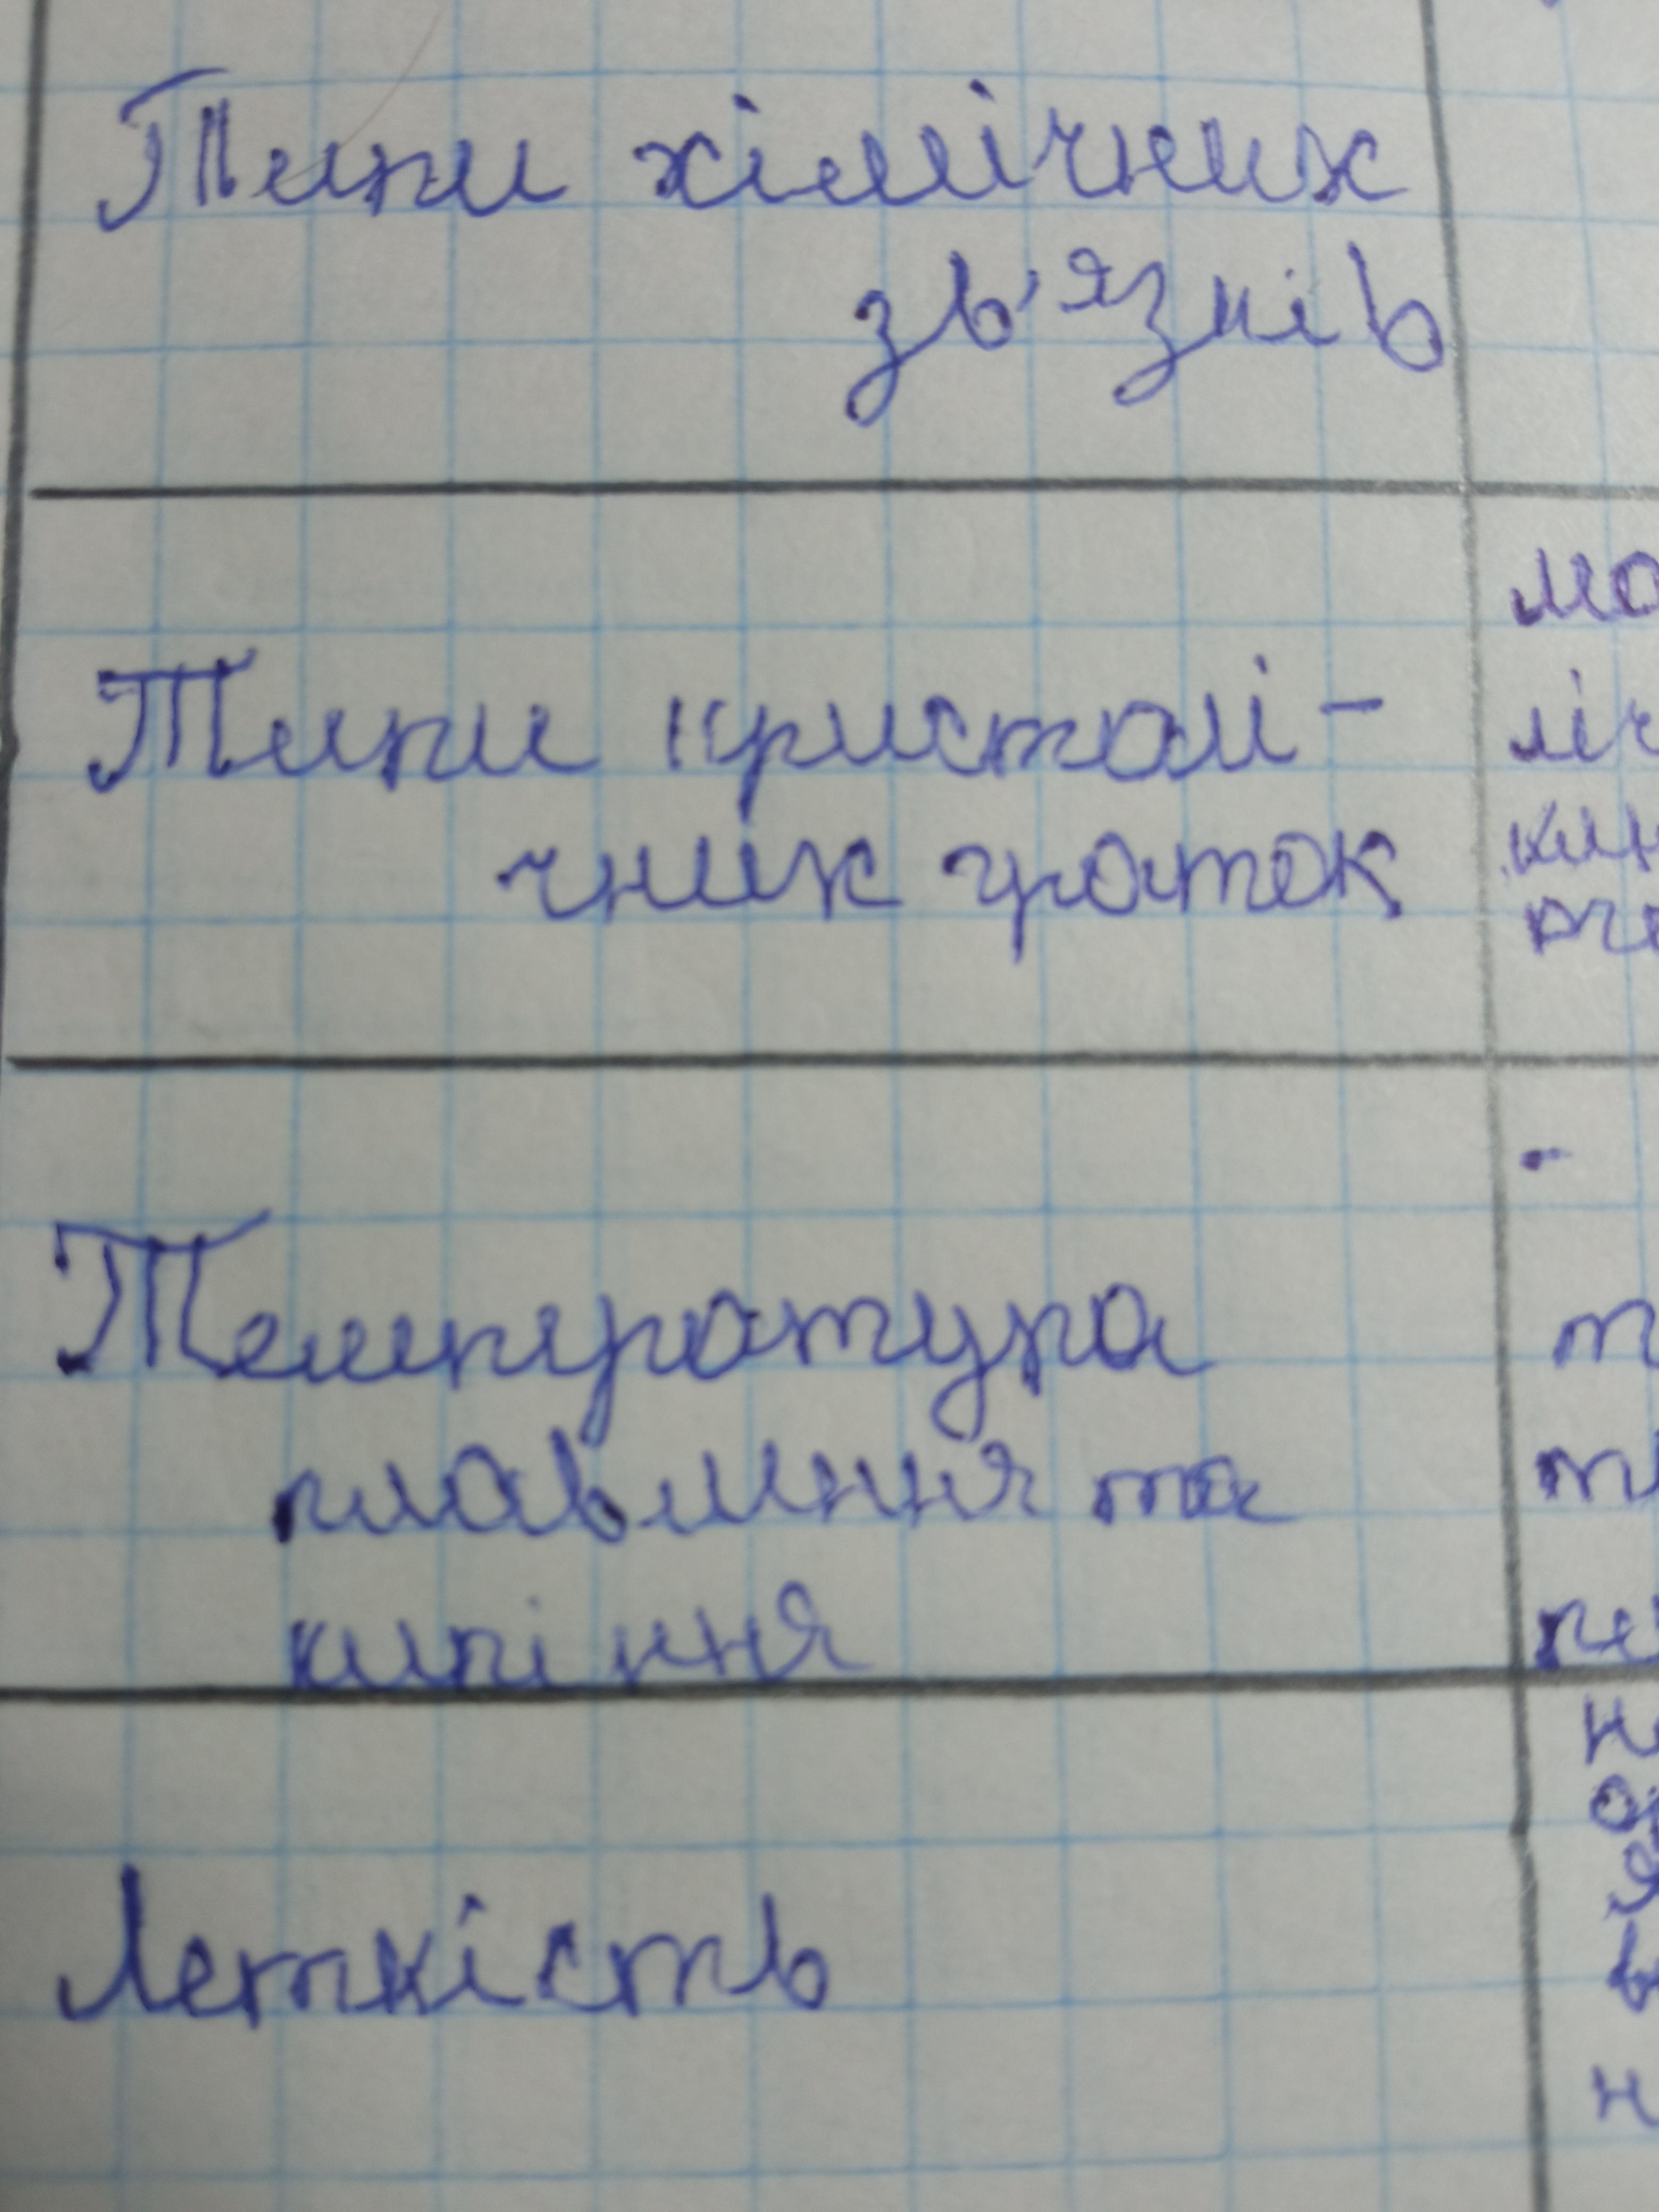 Типи хімічних
зв'язків
Типи кристалі-
чних граток
Температура
плавлення та
кипіння
Леткість